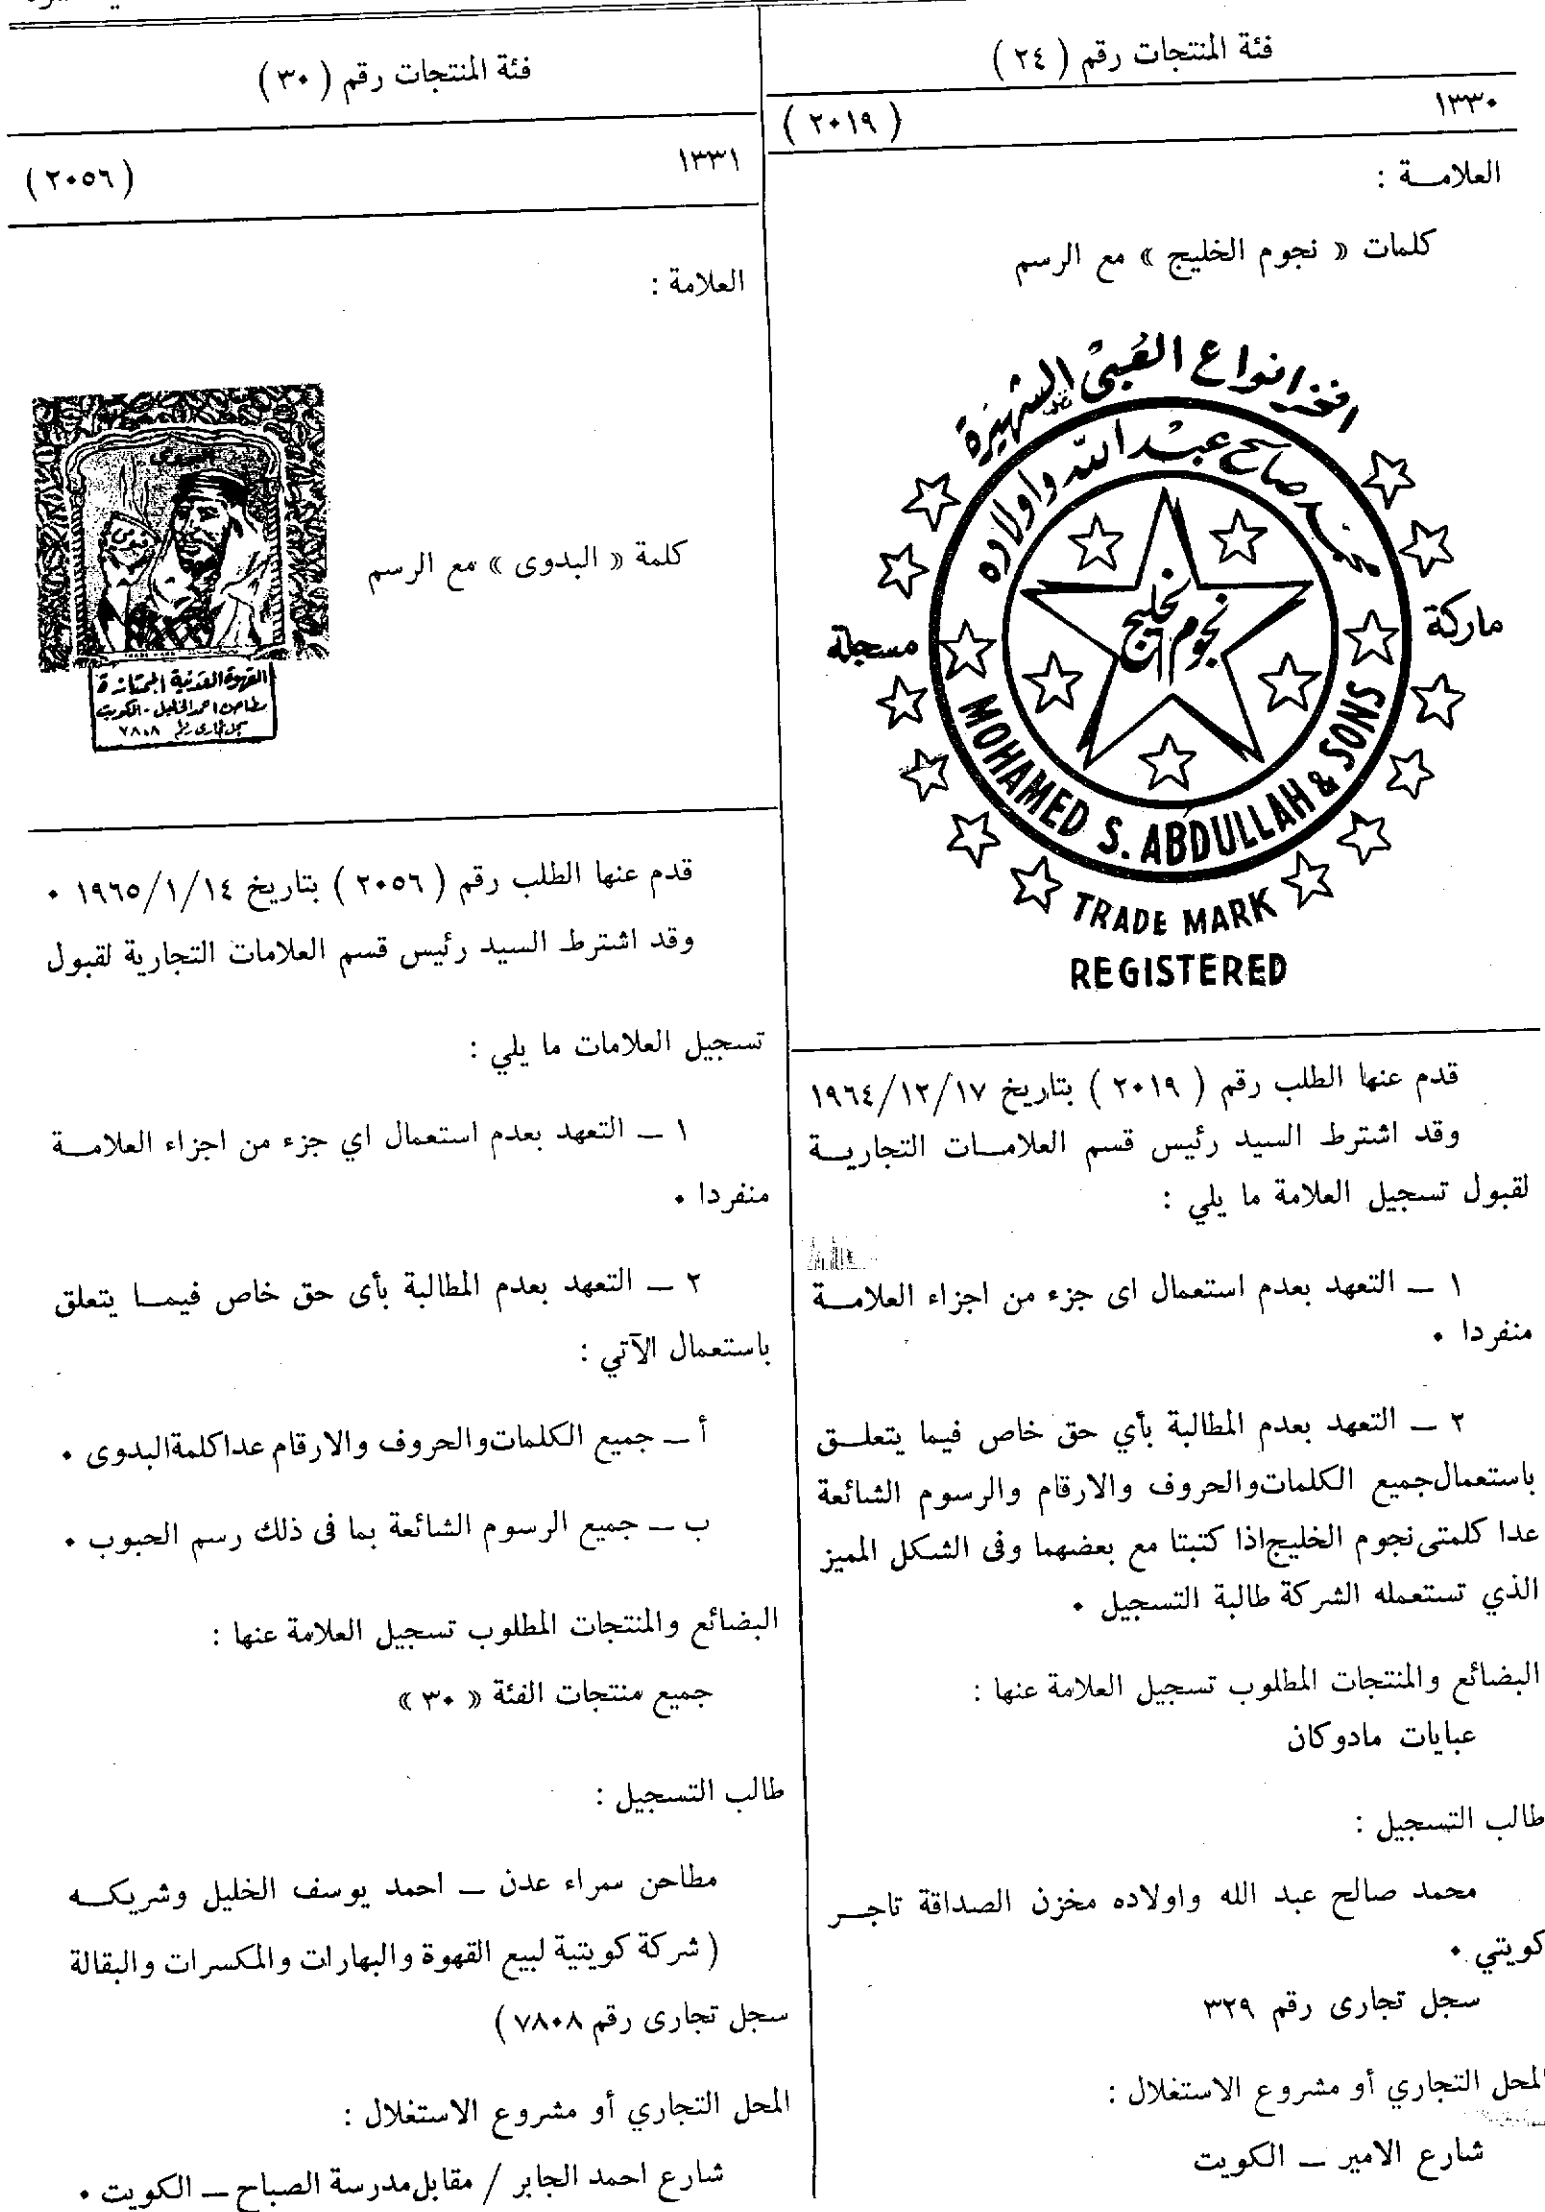 فئة المنتجات رقم ( ٢٤ )
١٣٣٠
( ٢٠١٩ )
العلامـــة :
كلمات « نجوم الخليج » مع الرسم
افخر انواع القبي الشهيرة
محمد صالح عبد الله واولاده
نجوم الخليج
ماركة
مسجلة
MOHAMED S. ABDULLAH & SONS
TRADE MARK
REGISTERED
قدم عنها الطلب رقم ( ٢٠١٩ ) بتاريخ ١٩٦٤/١٢/١٧
وقد اشترط السيد رئيس قسم العلامـــات التجاريـــة
لقبول تسجيل العلامة ما يلي :
١ ــ التعهد بعدم استعمال اى جزء من اجزاء العلامـــة
منفردا ٠
٢ ــ التعهد بعدم المطالبة بأي حق خاص فيما يتعلـــق
باستعمال جميع الكلمات والحروف والارقام والرسوم الشائعة
عدا كلمتى نجوم الخليج اذا كتبتا مع بعضهما وفى الشكل المميز
الذي تستعمله الشركة طالبة التسجيل ٠
البضائع والمنتجات المطلوب تسجيل العلامة عنها :
عبايات مادوكان
طالب التسجيل :
محمد صالح عبد الله واولاده مخزن الصداقة تاجـــر
كويتي ٠
سجل تجارى رقم ٣٢٩
المحل التجاري أو مشروع الاستغلال :
شارع الامير ــ الكويت
فئة المنتجات رقم ( ٣٠ )
١٣٣١
( ٢٠٥٦ )
العلامة :
كلمة « البدوى » مع الرسم
البدوى
القهوة العدنية الممتازة
مطاحن احمد الخليل - الكويت
سجل تجاري رقم ٧٨٠٨
قدم عنها الطلب رقم ( ٢٠٥٦ ) بتاريخ ١٩٦٥/١/١٤ ٠
وقد اشترط السيد رئيس قسم العلامات التجارية لقبول
تسجيل العلامات ما يلي :
١ ــ التعهد بعدم استعمال اي جزء من اجزاء العلامـــة
منفردا ٠
٢ ــ التعهد بعدم المطالبة بأى حق خاص فيمـــا يتعلق
باستعمال الآتي :
أ ــ جميع الكلمات والحروف والارقام عدا كلمة البدوى ٠
ب ــ جميع الرسوم الشائعة بما فى ذلك رسم الحبوب ٠
البضائع والمنتجات المطلوب تسجيل العلامة عنها :
جميع منتجات الفئة « ٣٠ »
طالب التسجيل :
مطاحن سمراء عدن ــ احمد يوسف الخليل وشريكـــه
( شركة كويتية لبيع القهوة والبهارات والمكسرات والبقالة
سجل تجارى رقم ٧٨٠٨ )
المحل التجاري أو مشروع الاستغلال :
شارع احمد الجابر / مقابل مدرسة الصباح ــ الكويت ٠